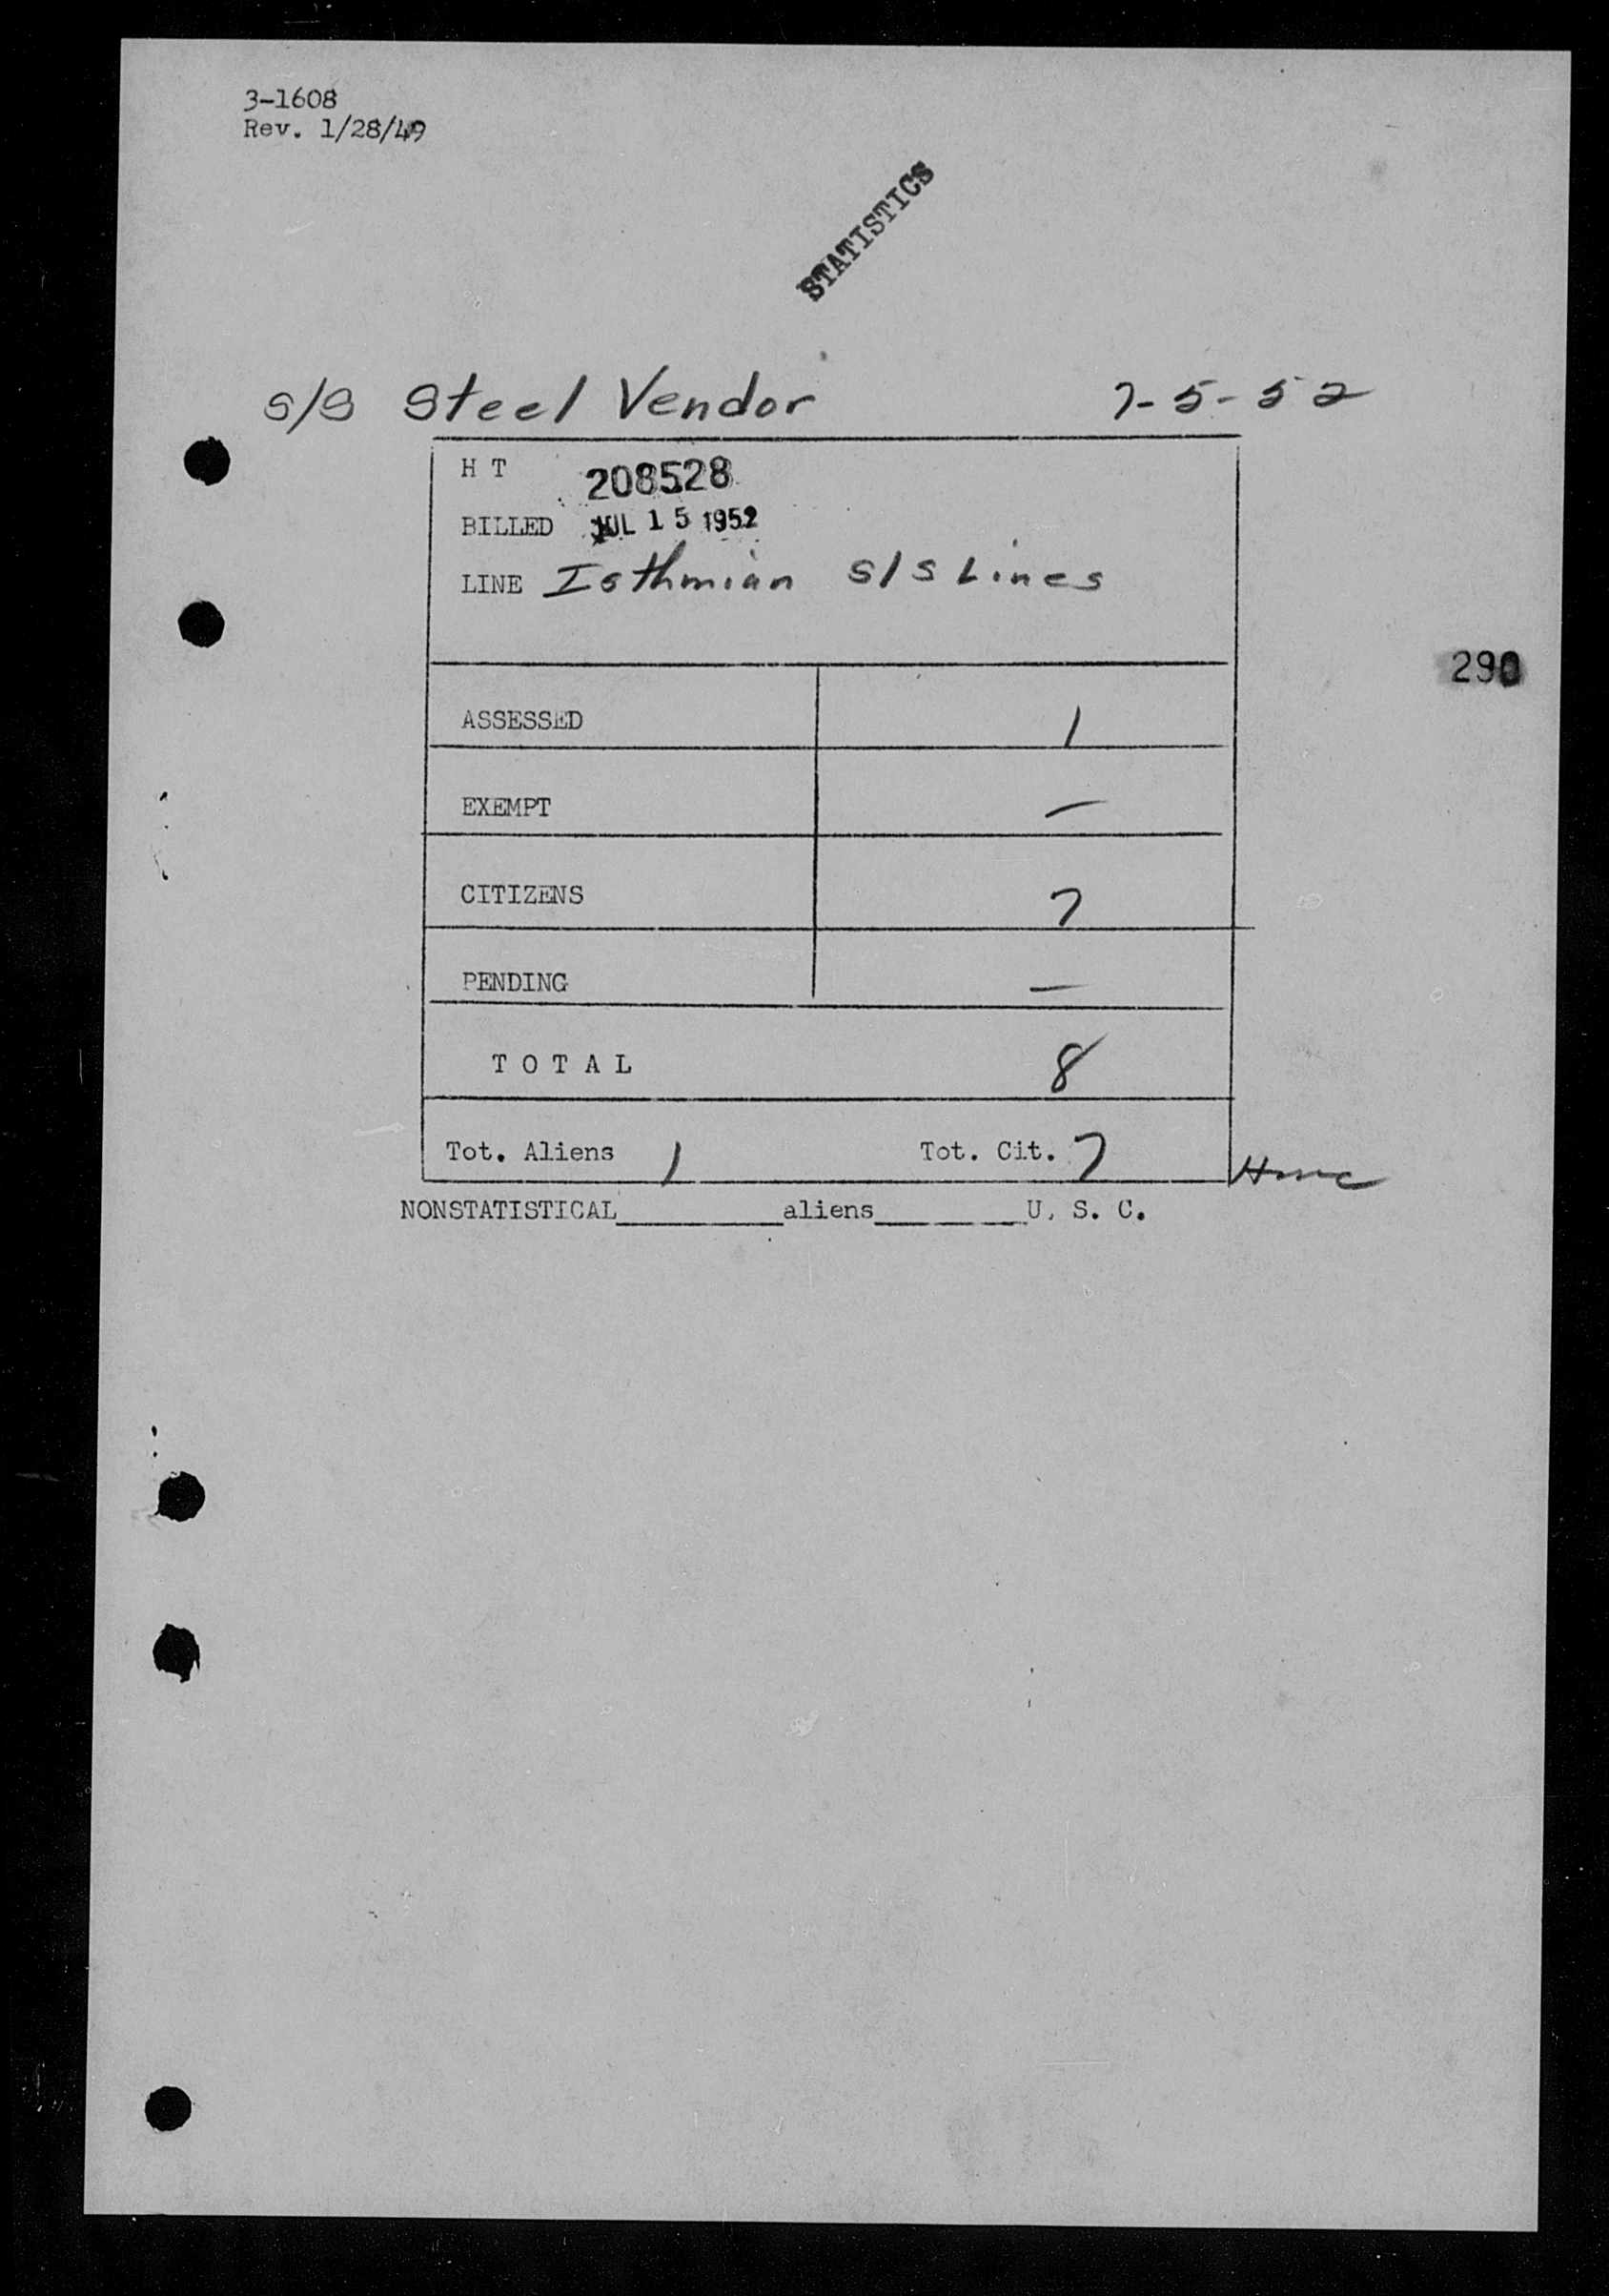 3-1608
Rev. 1/28/49
STATISTICS
S/S Steel Vendor 7-5-52
H T 208528
BILLED JUL 15 1952
LINE Isthmian S/S Lines
290
ASSESSED 1
EXEMPT —
CITIZENS 7
PENDING —
T O T A L 8
Tot. Aliens 1 Tot. Cit. 7
NONSTATISTICAL__________aliens_________U. S. C.